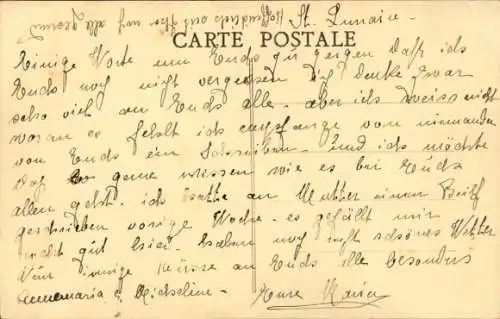 St. Lunaire -
Hoffendlich seit Ihr noch alle gesund
CARTE POSTALE
Einige Worte um Euds zu zeigen Daß ich
Euds noch nicht vergessen denke zwar
sehr viel an Euds alle - aber ich weiss nicht
woran es fehlt ich empfange von niemanden
von Euds ein Schreiben - und ich möchte
Das gerne wissen wie es bei Euds
allen geht. ich hatte an Mutter einen Brief
geschrieben vorige Woche - es gefällt mir
gut hier haben noch nicht schönes Wetter
Nun innige Küsse an Euds alle besonders
Annemaria & Micheline - Eure Maria